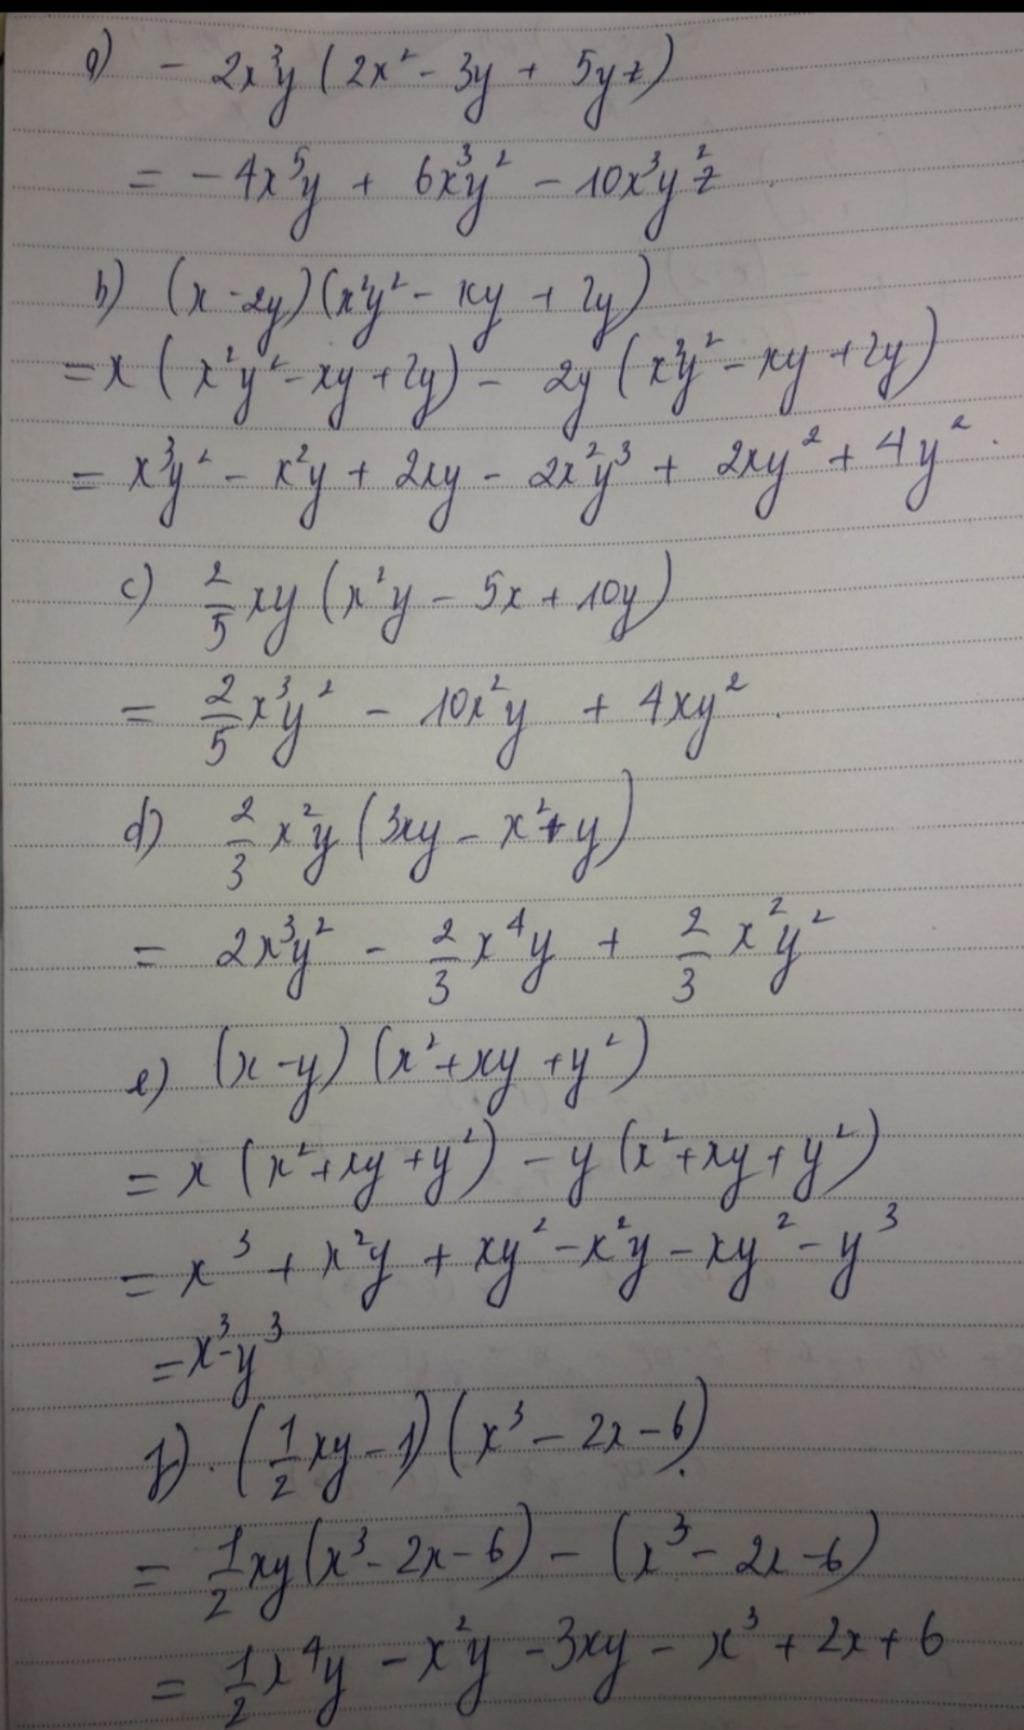 a) - 2x³y (2x² - 3y + 5yz)
= - 4x⁵y + 6x³y² - 10x³y²z
b) (x - 2y)(x²y² - xy + 2y)
= x (x²y² - xy + 2y) - 2y (x²y² - xy + 2y)
= x³y² - x²y + 2xy - 2x²y³ + 2xy² + 4y².
c) 2/5 xy (x²y - 5x + 10y)
= 2/5 x³y² - 10x²y + 4xy².
d) 2/3 x²y (3xy - x² + y)
= 2x³y² - 2/3 x⁴y + 2/3 x²y²
e) (x - y) (x² + xy + y²)
= x (x² + xy + y²) - y (x² + xy + y²)
= x³ + x²y + xy² - x²y - xy² - y³
= x³ - y³
f). (1/2 xy - 1) (x³ - 2x - 6).
= 1/2 xy (x³ - 2x - 6) - (x³ - 2x - 6)
= 1/2 x⁴y - x²y - 3xy - x³ + 2x + 6